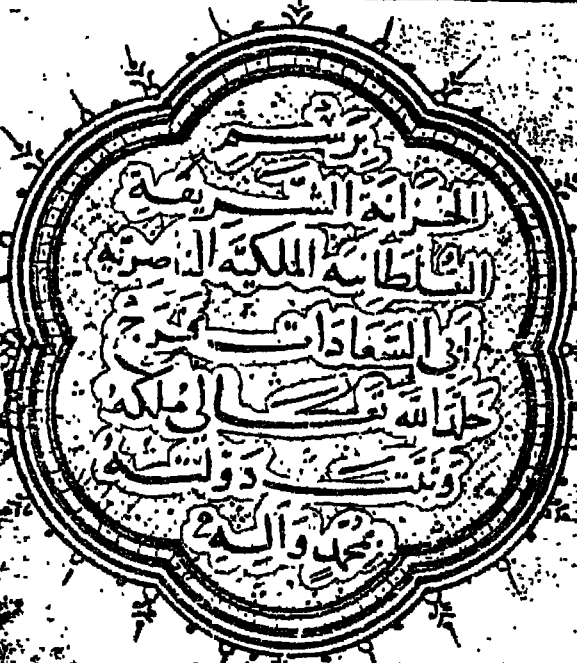 برسم
الخزانة الشريفة
السلطانية الملكية الناصرية
أبي السعادات فرج
خلد الله تعالى ملكه
وثبت دولته
بمحمد وآله